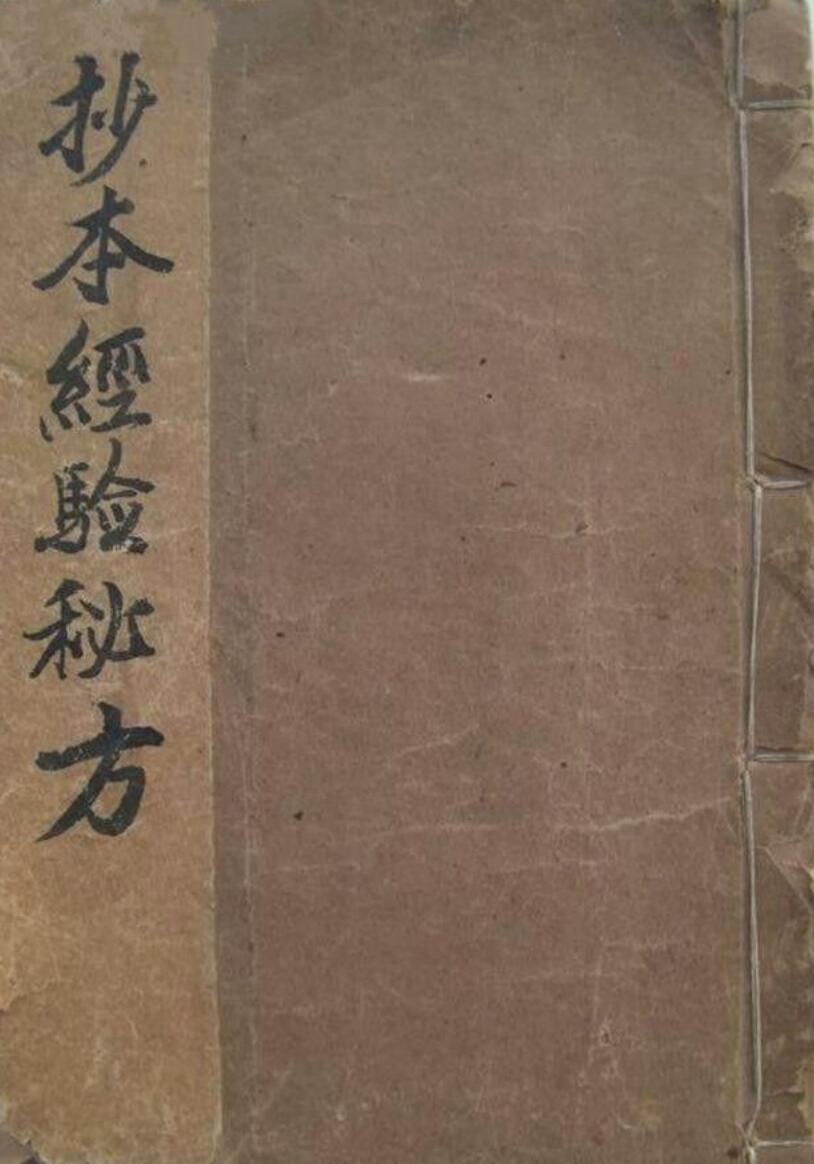 抄本經驗秘方